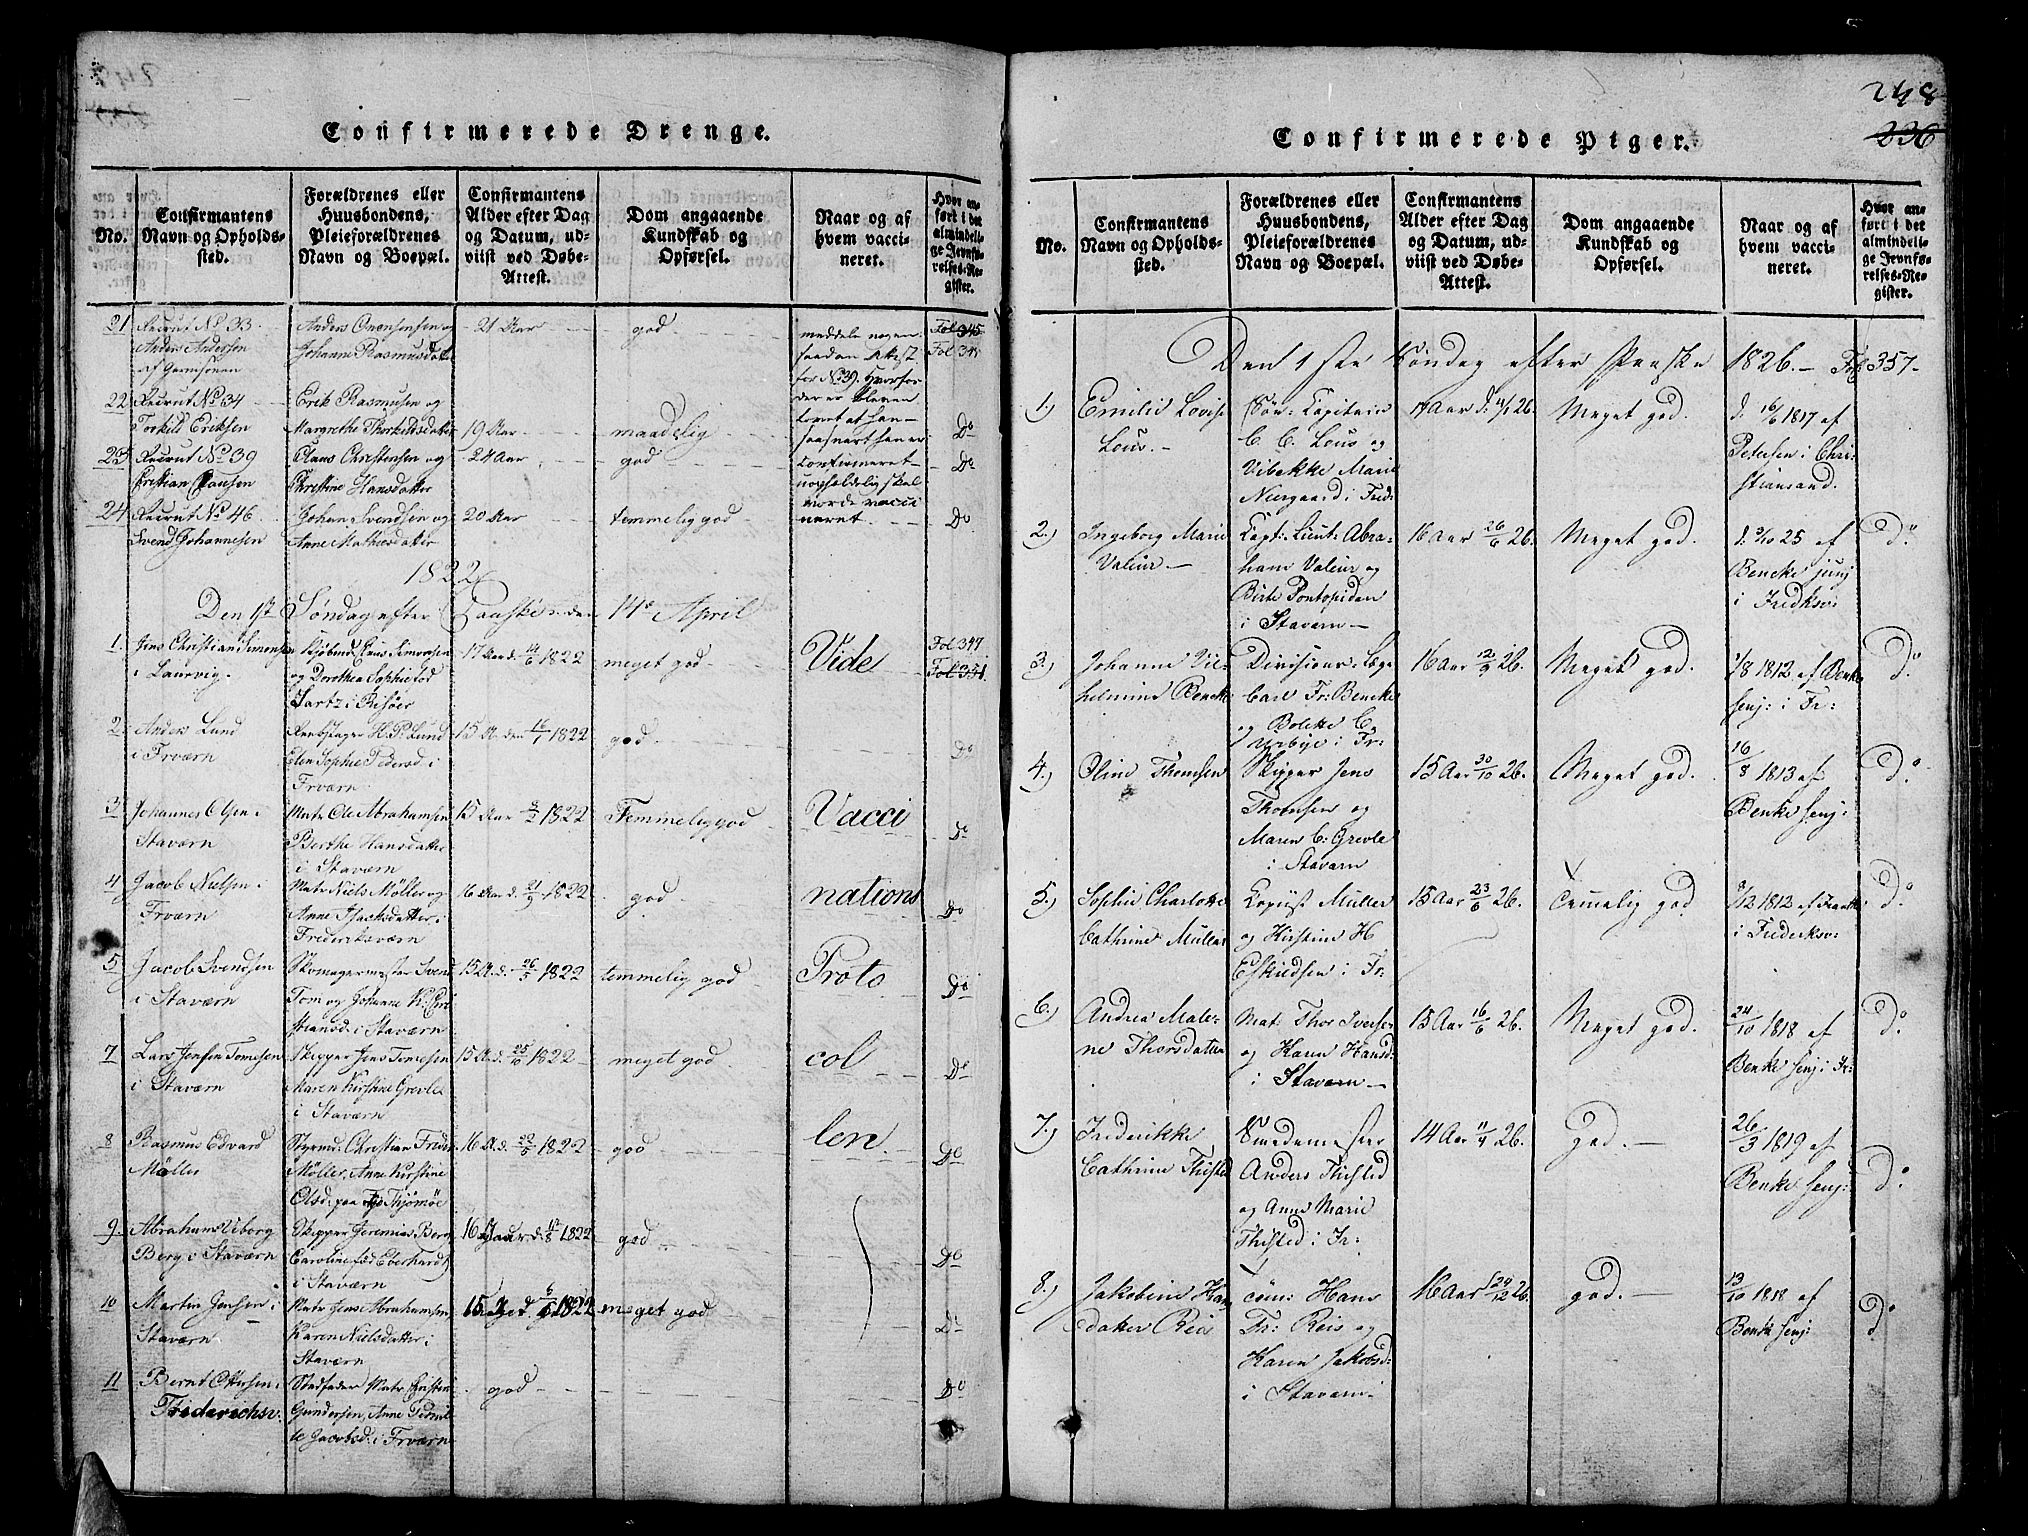 Confirmerede Drenge.
No.
Confirmantens
Navn og Opholds-
sted.
Forældrenes eller
Huusbondens,
Pleieforældrenes
Navn og Boepæl.
Confirmantens
Alder efter Dag
og Datum, ud-
viist ved Døbe-
Attest.
Dom angaaende
Kundskab og
Opførsel.
Naar og af
hvem vacci-
neret.
Hvor an-
ført i det
almindeli-
ge Jevnfø-
relses-Re-
gister.
21 Recrut No 33
Anders Andersen
af Garnisonen
Anders Onensen og
Johanne Rasmusdatter
21 Aar
god
meddele nogen
saadan Attest
for No 39. Hvorfor
Fol 345
22 Recrut No 34
Torkild Eriksen
Erik Rasmusen og
Margrethe Thorkildsdatter
19 Aar
maadelig
Do
23 Recrut No 39
Cristian Clausen
Claus Christensen og
Christine Hansdatter
24 Aar
god
confirmeret
uopholdelig skal
vorde vacci
neret.
Do
24 Recrut No 46
Svend Johannesen
Johan Svendsen og
Anne Mathisdatter
20 Aar
temmelig god
Do
1822
Den 1st Søndag efter Paaske den 14de April
1. Jens Christian Simonsen
i Laurvig.
og Dorothea Sophie fød
Lartz i Risøer
17 Aar d. 14/6 1822
meget god
Vide
Fol 347
Fol 351
2. Anders Lund
i Frværn
Rebslager H. P. Lund
Elen Sophie Pedersd i
Frværn
15 A. den 16/1 1822
god
Do
3 Johannes Olsen i
Staværn
Matr Ole Abrahamsen
Berthe Hansdatter
i Staværn
15 Aar 8/2 1822
Temmelig god
Vacci
Do
4 Jacob Nielsen i
Frværn
Matr Niels Møller og
Anne Isachsdatter i
Frederiksværn
16 Aar d. 21/9 1822
god
nations
Do
5 Jacob Svendsen
i Staværn
Skomagermester Svend
Tom og Johanne K. Chri
stiansd i Staværn
15 A. d. 26/5 1822
temmelig god
Proto
Do
7 Lars Jensen Tomesen
i Staværn
Skipper Jens Tomesen
Maren Kirstine Grevle
i Staværn
15 A. d. 25/10 1822
meget god
col
Do
8 Rasmus Edvard
Møller
Styrmd: Christian Fredr
Møller, Anne Kirstine
Olsd: paa Thjømøe
16 A. d. 22/5 1822
god
len
Do
9. Abraham Viborg
Berg i Staværn
Skipper Jeremias Berg
Caroline fød Eberhardt
i Staværn
16 Aar d. 17/8 1822
god
Do
10 Martin Jensen i
Staværn
Matr Jens Abrahamsen
Karen Nielsdatter i
Staværn
meget god
Do
11 Bernt Ottesen i
Friderichsv.
Gundersen, Anne Pernil
le Jacobsd: i Frværn
god
Do
248
236
Confirmerede Piger.
No.
Confirmantens
Navn og Opholds-
sted.
Forældrenes eller
Huusbondens,
Pleieforældrenes
Navn og Boepæl.
Confirmantens
Alder efter Dag
og Datum, ud-
viist ved Døbe-
Attest.
Dom angaaende
Kundskab og
Opførsel.
Naar og af
hvem vacci-
neret.
Hvor an-
ført i det
almindeli-
ge Jevnfø-
relses-Re-
gister.
Den 1ste Søndag efter Paaske 1826. Fol 357
1.) Emilie Lovise
Lous.
Søe: Capitain
C. C. Lous og
Vibekke Marie
Neergaard i Fred:
17 Aar d: 4/1 26
Meget god.
d. 16/6 1817 af
Petersen i Chri-
stiansand.
2.) Ingeborg Marie
Valeur
Capt: Lieut: Abra-
ham Valeur og
Birte Pontopidan
i Stavern
16 Aar 26/6 26.
Meget god.
d: 3/10 25 af
Bencke junj
i Fredksv:
do
3.) Johanne Vil-
helmine Bencke
Divisions-Læge
Carl Fr: Bencke
og Bolette C.
Vibye i Fr:
16 Aar 12/9 26.
Meget god.
1/8 1812 af Benke
senj: i Fr:
do
4.) Oline Thomsen
Skipper Jens
Thomsen og
Maren C: Grevle
i Stavern
15 Aar 30/10 26.
Meget god.
16/8 1813 af
Benke senj:
do
5.) Sophie Charlotte
Cathrine Müller
Copiist Müller
og Kirstine H
Eskildsen i Fr
15 Aar 23/6 26.
Temelig god
8/12 1812 af
i Frederksv:
do
6.) Andrea Male-
ne Thorsdatter
Mat: Thor Iversen
og Karen Hansd:
i Stavern
15 Aar 16/6 26.
Meget god.
24/10 1818 af
Benke senj i Fr:
do
7.) Frederikke
Cathrine Thisted
Smedemester
Anders Thisted
og Anne Marie
Thisted i Fr:
14 Aar 11/4 26.
God.
26/3 1819 af
Benke senj:
do
8.) Jakobine Han
datter Reis
Hans
Fr: Reis og
Karen Jakobsd:
i Stavern
16 Aar 24/12 26.
god.
13/10 1818 af
Benk senj:
do